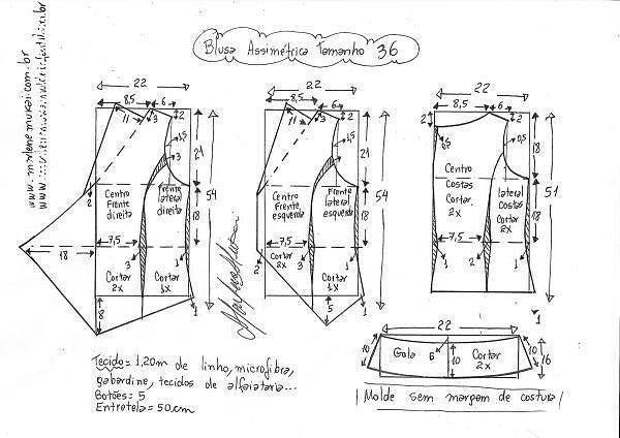 Blusa Assimétrica Tamanho 36
www.marlenemukai.com.br
22
8,5 6
11 3 2
1,5
3
21
54
2
Centro
Frente
direita
Frente
lateral
direita
18
7,5
18
3
1
Cortar
2x
Cortar
1x
8
1
22
8,5 6
11 3 2
1,5
3
21
54
2
Centro
Frente
esquerda
Frente
lateral
esquerda
18
7,5
2
3
1
Cortar
2x
Cortar
1x
5
1
22
8,5 6
2
2
18
51
Centro
Costas
Cortar
2x
lateral
Costas
Cortar
2x
18
7,5
1
2
1
1
22
10
Gola
6
10
Cortar
2x
10
16
Tecido= 1,20m de linho, microfibra,
gabardine, tecidos de alfaiataria...
Botões= 5
Entretela= 50cm
Molde sem margem de costura